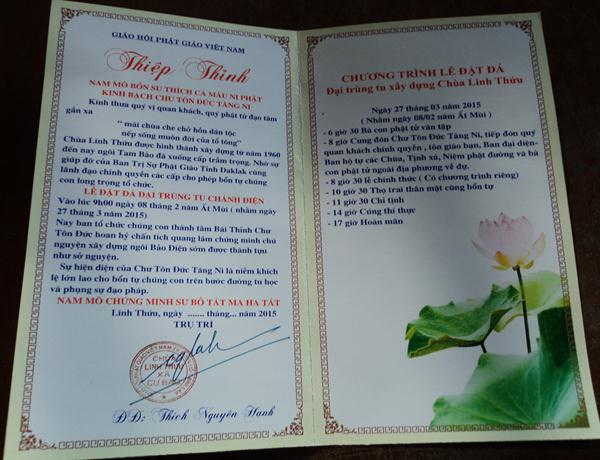 GIÁO HỘI PHẬT GIÁO VIỆT NAM
Thiệp Thỉnh
NAM MÔ BỔN SƯ THÍCH CA MÂU NI PHẬT
KÍNH BẠCH CHƯ TÔN ĐỨC TĂNG NI
Kính thưa quý vị quan khách, quý phật tử đạo tâm
gắn xa
“ mái chùa che chở hồn dân tộc
nếp sống muôn đời của tổ tông”
Chùa Linh Thứu được hình thành xây dựng từ năm 1960
đến nay ngôi Tam Bảo đã xuống cấp trầm trọng. Nhờ sự
giúp đỡ của Ban Trị Sự Phật Giáo Tỉnh Daklak cùng
lãnh đạo chính quyền các cấp cho phép bổn tự chúng
con long trọng tổ chức.
LỄ ĐẶT ĐÁ ĐẠI TRÙNG TU CHÁNH ĐIỆN
Vào lúc 9h00 ngày 08 tháng 2 năm Ất Mùi ( nhằm ngày
27 tháng 3 năm 2015)
Nay ban tổ chức chúng con thành tâm Bái Thỉnh Chư
Tôn Đức hoan hỷ chấn tích quang lâm chứng minh chú
nguyện xây dựng ngôi Bảo Điện sớm được thành tựu
như sở nguyện.
Sự hiện diện của Chư Tôn Đức Tăng Ni là niềm khích
lệ lớn lao cho bổn tự chúng con trên bước đường tu học
và phụng sự đạo pháp.
NAM MÔ CHỨNG MINH SƯ BỒ TÁT MA HA TÁT
Linh Thứu, ngày ....... tháng... năm 2015
TRỤ TRÌ
CHÙA
LINH THỨU
XÃ
CƯ BAO
ĐĐ: Thích Nguyên Hạnh
CHƯƠNG TRÌNH LỄ ĐẶT ĐÁ
Đại trùng tu xây dựng Chùa Linh Thứu
Ngày 27 tháng 03 năm 2015
( Nhằm ngày 08/02 năm Ất Mùi )
- 6 giờ 30 Bà con phật tử vân tập
- 8 giờ Cung đón Chư Tôn Đức Tăng Ni, tiếp đón quý
quan khách chính quyền , tôn giáo bạn, Ban đại diện-
Ban hộ tự các Chùa, Tịnh xá, Niệm phật đường và bà
con phật tử ngoài địa phương về dự.
- 8 giờ 30 lễ chính thức ( Có chương trình riêng)
- 10 giờ 30 Thọ trai thân mật cùng bổn tự
- 11 giờ 30 Chỉ tịnh
- 14 giờ Cúng thí thực
- 17 giờ Hoàn mãn